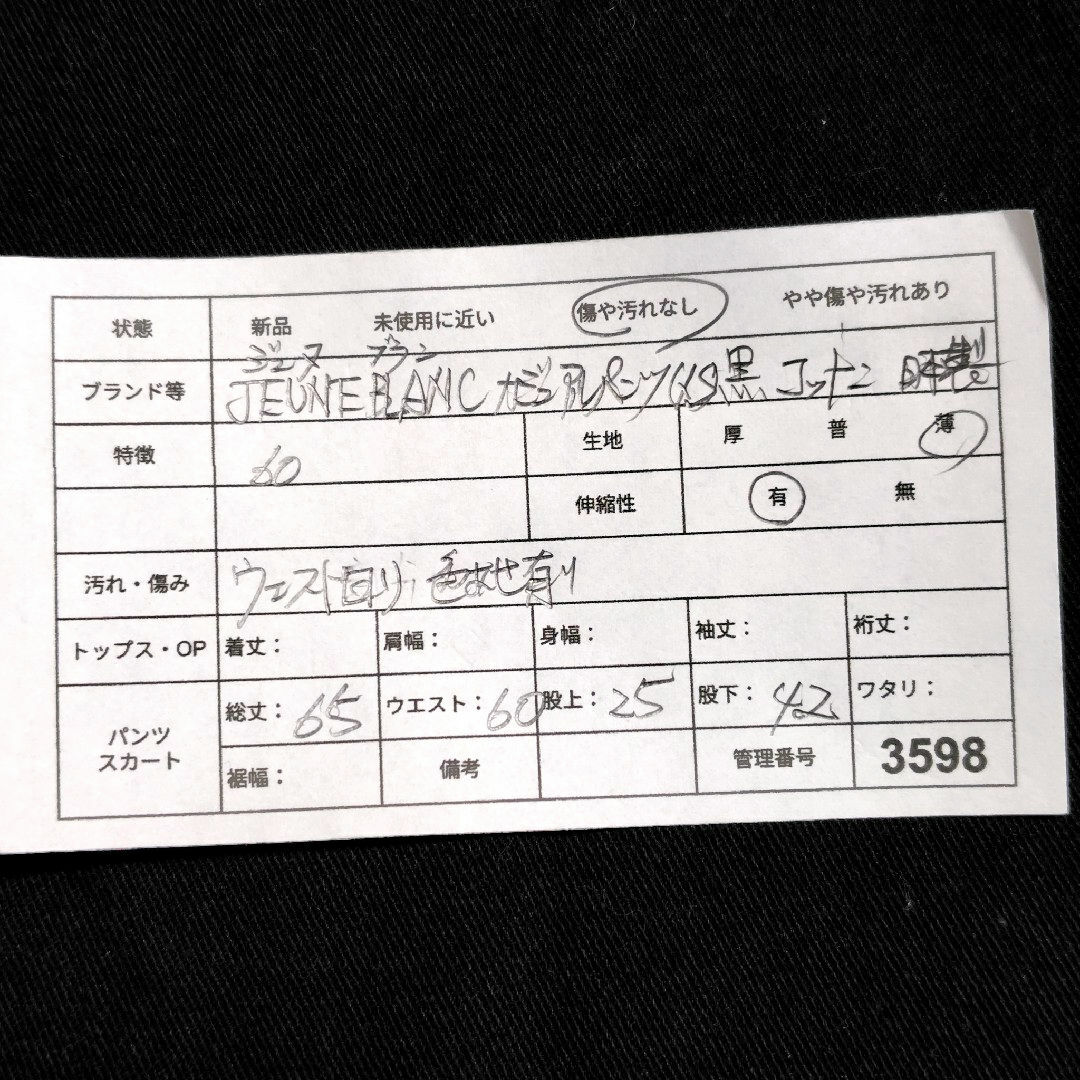 状態 新品 未使用に近い 傷や汚れなし やや傷や汚れあり
ジェーヌ ブラン
ブランド等 JEUNE BLANC パンツ XS 黒 コットン 日本製
特徴 60 生地 厚 普 薄
伸縮性 有 無
汚れ・傷み ウエスト回り 色あせ有り
トップス・OP 着丈: 肩幅: 身幅: 袖丈: 裄丈:
パンツ スカート 総丈: 65 ウエスト: 60 股上: 25 股下: 42 ワタリ:
裾幅: 備考 管理番号 3598